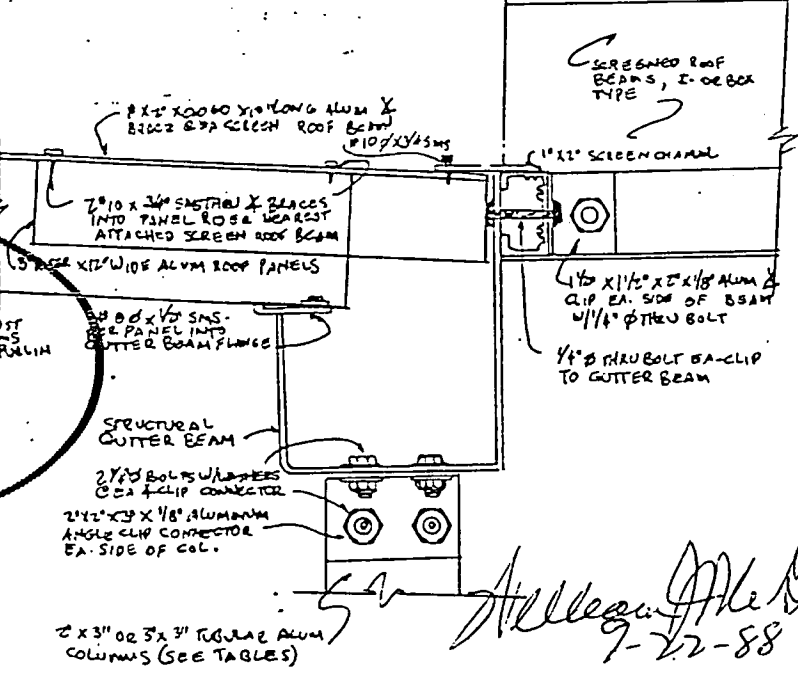 SCREENED ROOF
BEAMS, I- OR BOX
TYPE
2" X 0.060 X 10" LONG ALUM
BRACE @ EA SCREEN ROOF BEAM
#10 Ø X 3/4 SMS
1" X 2" SCREEN CHANNEL
2 #10 X 3/4" BRACES
INTO PANEL RISER NEAREST
ATTACHED SCREEN ROOF BEAM
3" RISER X 12" WIDE ALUM ROOF PANELS
# 8 Ø X 1/2" SMS-
PER PANEL INTO
GUTTER BEAM FLANGE
PURLIN
1 1/2" X 1 1/2" X 2" X 1/8" ALUM
CLIP EA. SIDE OF BEAM
W/ 1/4" Ø THRU BOLT
1/4" Ø THRU BOLT EA-CLIP
TO GUTTER BEAM
STRUCTURAL
GUTTER BEAM
2 1/4" Ø BOLTS W/WASHERS
@ EA CLIP CONNECTOR
2" X 2" X 3" X 1/8" ALUMINUM
ANGLE CLIP CONNECTOR
EA. SIDE OF COL.
2" X 3" OR 3" X 3" TUBULAR ALUM
COLUMNS (SEE TABLES)
9-22-88